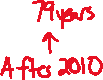 79 years
↑
After 2010